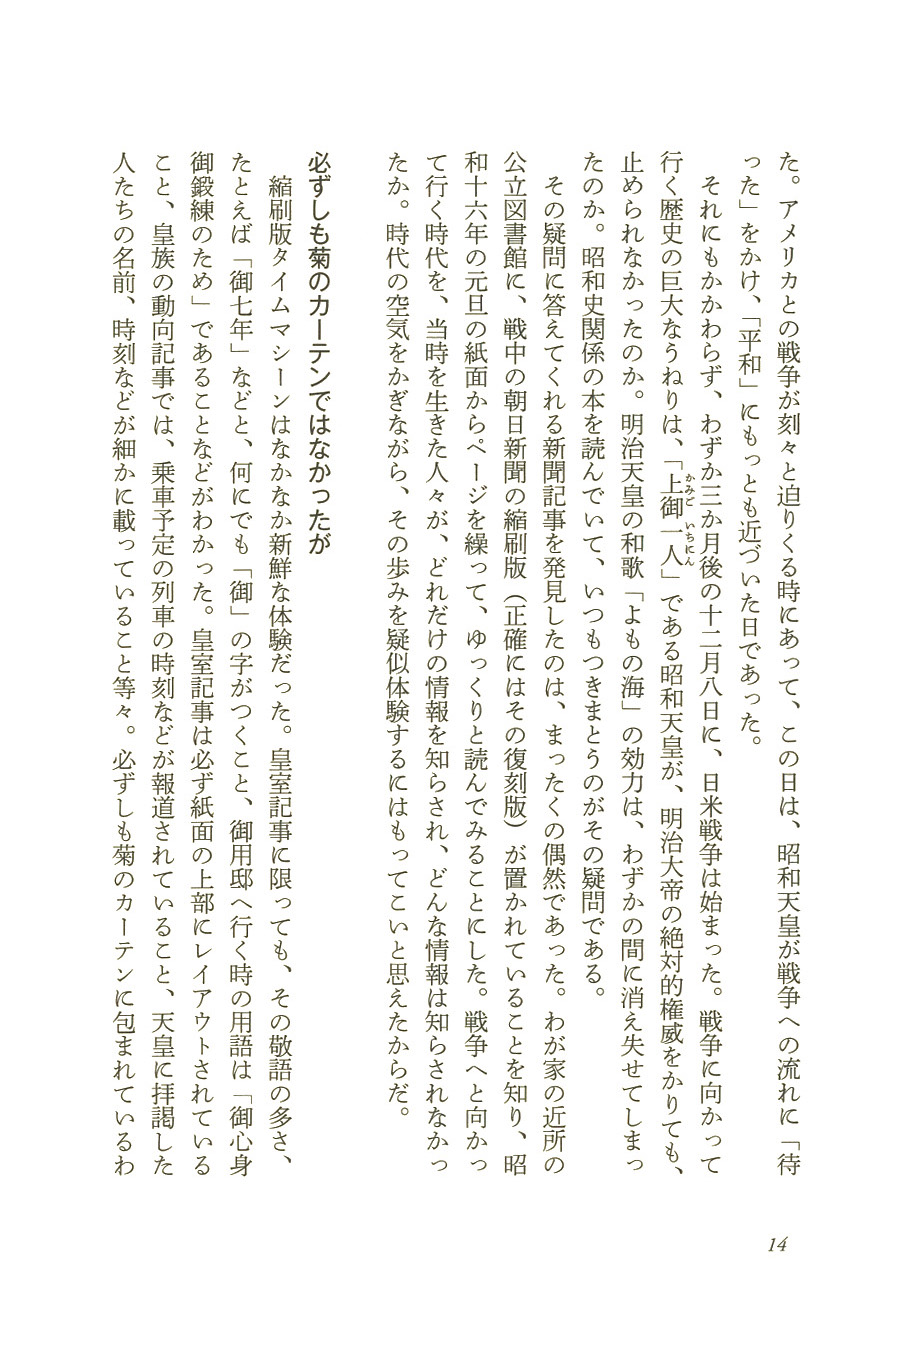 た。アメリカとの戦争が刻々と迫りくる時にあって、この日は、昭和天皇が戦争への流れに「待
った」をかけ、「平和」にもっとも近づいた日であった。
それにもかかわらず、わずか三か月後の十二月八日に、日米戦争は始まった。戦争に向かって
行く歴史の巨大なうねりは、「上御一人」である昭和天皇が、明治大帝の絶対的権威をかりても、
かみご いちにん
止められなかったのか。明治天皇の和歌「よもの海」の効力は、わずかの間に消え失せてしまっ
たのか。昭和史関係の本を読んでいて、いつもつきまとうのがその疑問である。
その疑問に答えてくれる新聞記事を発見したのは、まったくの偶然であった。わが家の近所の
公立図書館に、戦中の朝日新聞の縮刷版（正確にはその復刻版）が置かれていることを知り、昭
和十六年の元旦の紙面からページを繰って、ゆっくりと読んでみることにした。戦争へと向かっ
て行く時代を、当時を生きた人々が、どれだけの情報を知らされ、どんな情報は知らされなかっ
たか。時代の空気をかぎながら、その歩みを疑似体験するにはもってこいと思えたからだ。
必ずしも菊のカーテンではなかったが
縮刷版タイムマシーンはなかなか新鮮な体験だった。皇室記事に限っても、その敬語の多さ、
たとえば「御七年」などと、何にでも「御」の字がつくこと、御用邸へ行く時の用語は「御心身
御鍛練のため」であることなどがわかった。皇室記事は必ず紙面の上部にレイアウトされている
こと、皇族の動向記事では、乗車予定の列車の時刻などが報道されていること、天皇に拝謁した
人たちの名前、時刻などが細かに載っていること等々。必ずしも菊のカーテンに包まれているわ
14